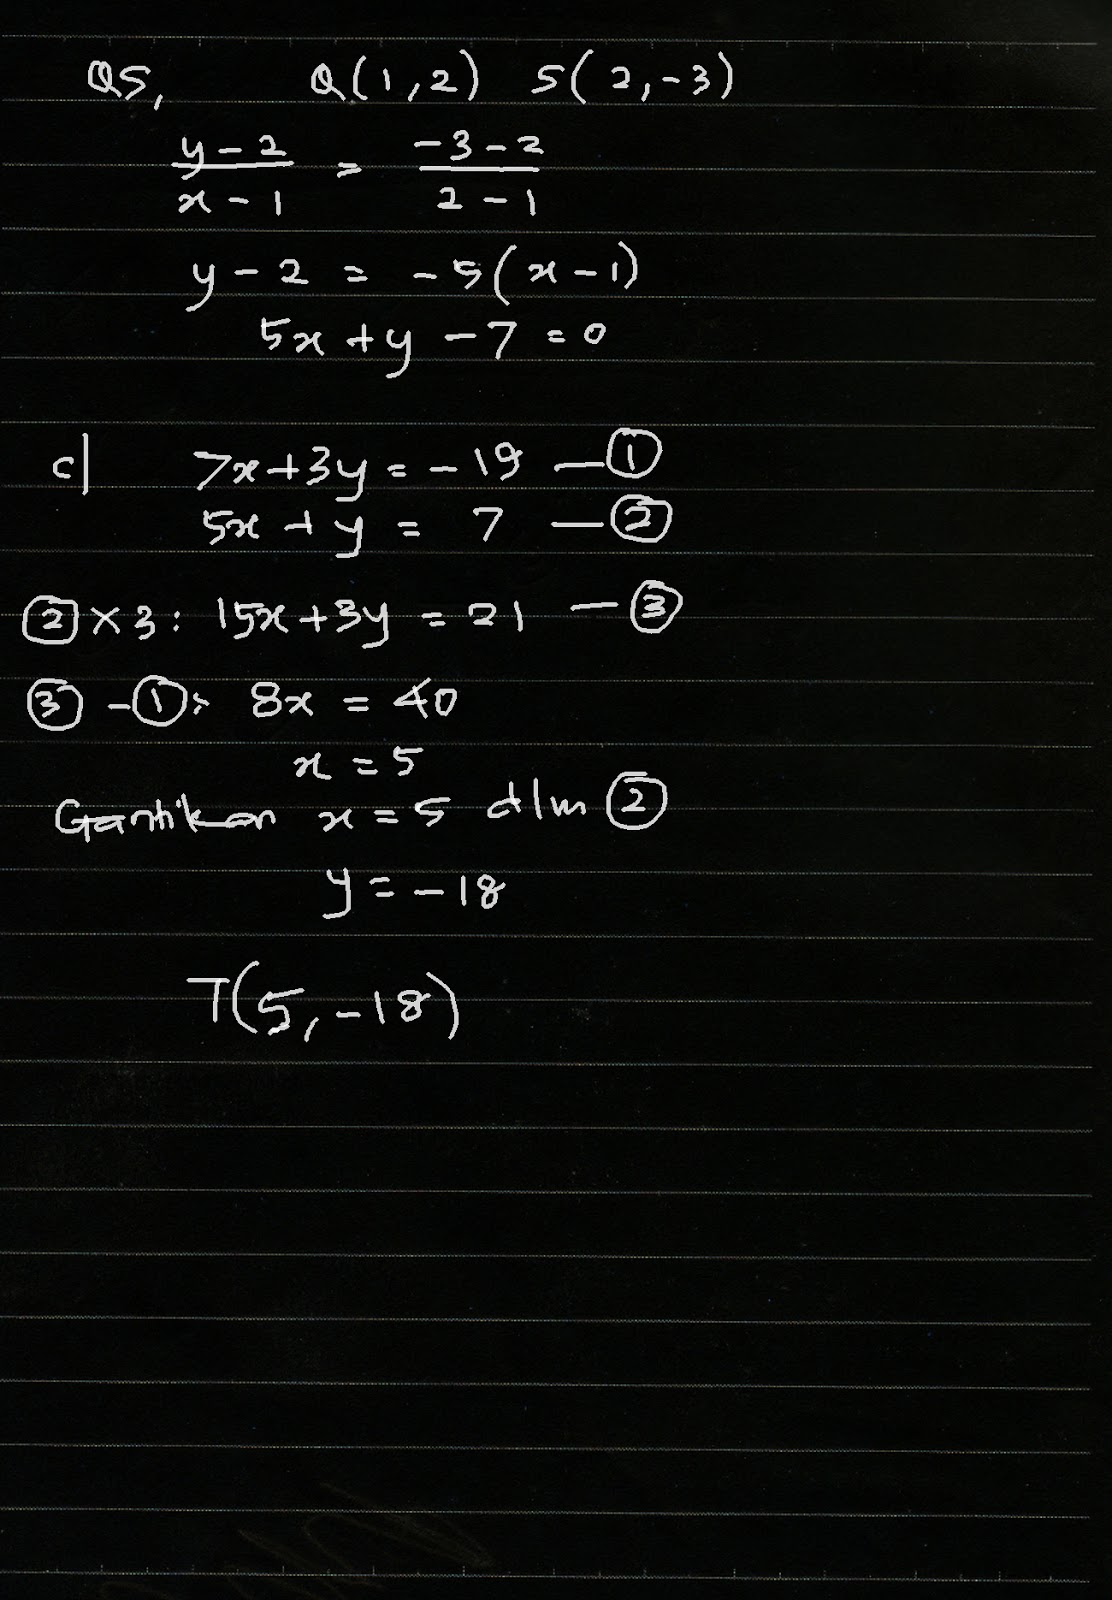 QS, Q(1,2) S(2,-3)
y-2 / x-1 = -3-2 / 2-1
y-2 = -5(x-1)
5x+y-7=0
c) 7x+3y=-19 —①
5x+y=7 —②
②×3: 15x+3y=21 —③
③-①: 8x=40
x=5
Gantikan x=5 dlm ②
y=-18
T(5,-18)